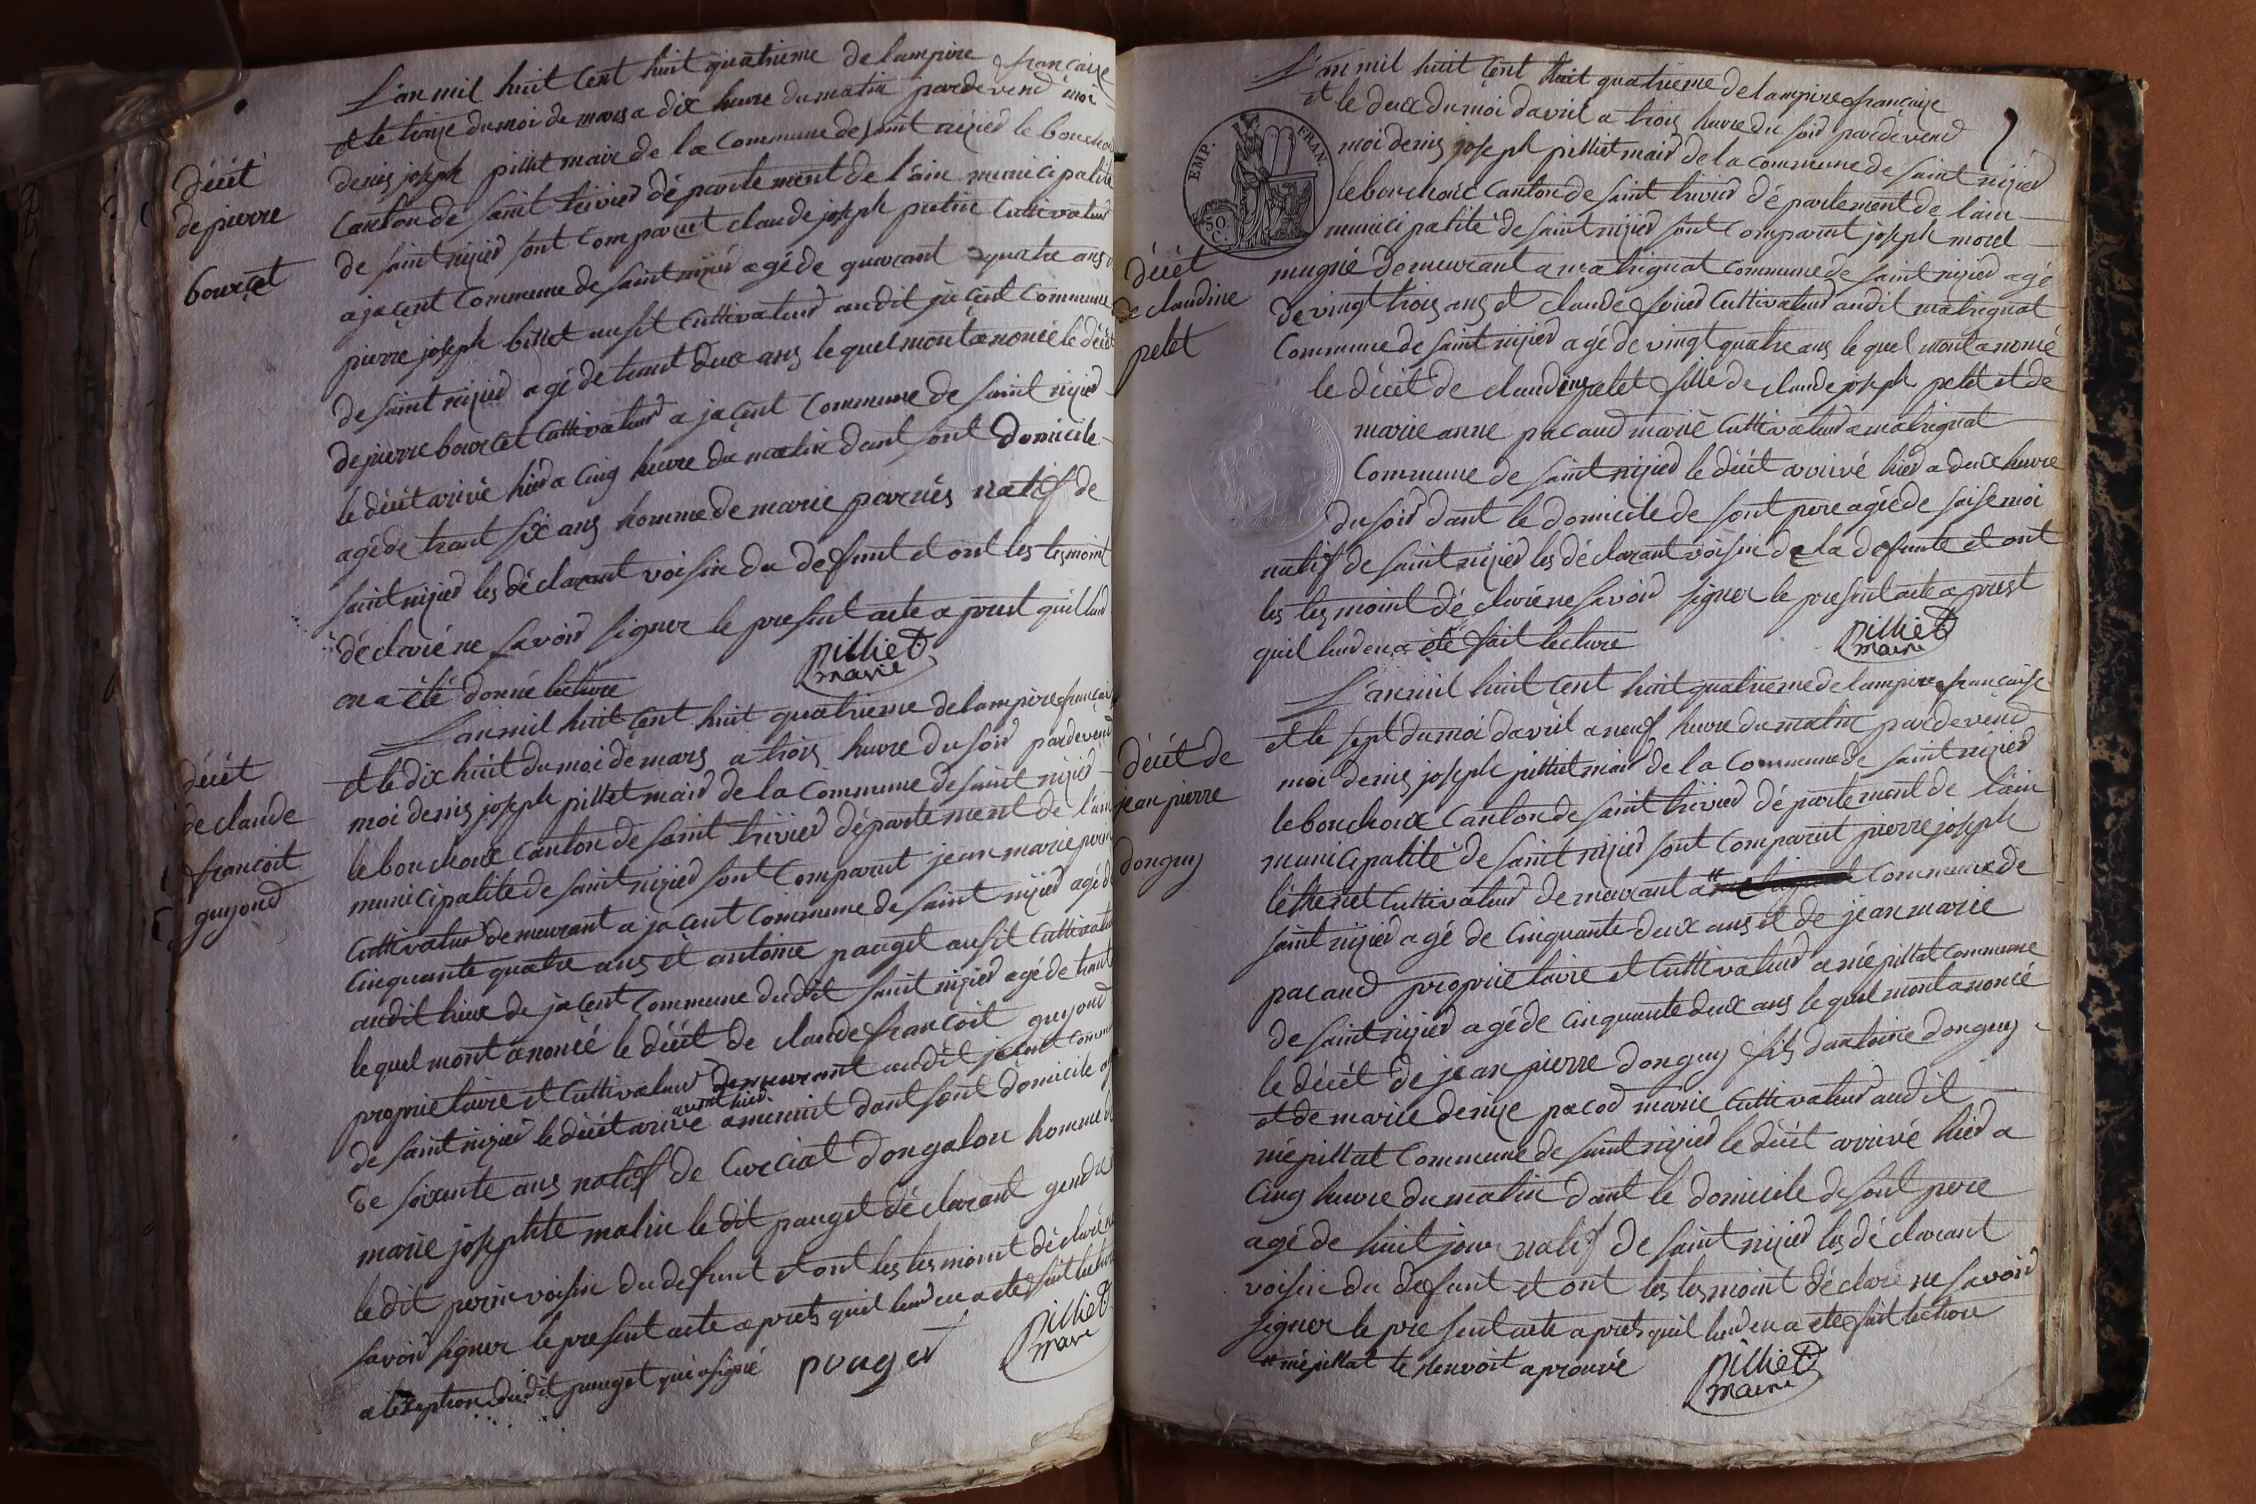 L'an mil huit cent huit quatrieme de lampire francaise
et le traize du moi de mars a dix heure du matin pardevend moi
denis joseph pilliet maire de la commune de saint nizied le bouchoux
canton de saint trivied département de l'ain municipalité
de saint nizied sont comparut claude joseph putin cultivateud
a jacent commune de saint nizied agé de quarant quatre ans
pierre joseph billet ausit cultivateud audit jacent commune
de saint nizied agé de trant deux ans le quel mont anoncé le décét
de pierre bourcet cultivateud a jacent commune de saint nizied
le décét arivé hied a cinq heure du matin dant sont domicile
agé de trant six ans homme de marie parnés natif de
saint nizied les déclarant voisin du defunt et ont les tesmoint
déclaré ne savoid signer le present acte a prest quil lud
en a été donné lecture
pilliet
maire
décét
de pierre
bourcet
L'an mil huit cent huit quatrieme de lampire francaise
et le dix huit du moi de mars a trois heure du soid pardevend
moi denis joseph pilliet maid de la commune de saint nizied
le bouchoux canton de saint trivied département de l'ain
municipalite de saint nizied sont comparut jean marie perin
cultivateud demeurant a jacent commune de saint nizied agé de
cinquante quatre ans et antoine pauget ausit cultivateud
audit lieux de jacent commune dudit saint nizied agé de trant
le quel mont anoncé le décét de claude francoit guyond
proprietaire et cultivateud demeurant audit jacent commune
avant hied
de saint nizied le décét arivé a menuit dant sont domicile agé
de soixante ans natif de curciat dongalon homme de
marie josephte matin le dit pauget déclarant gendre
le dit perin voisin du defunt et ont les tesmoint déclaré ne
savoid signer le present acte a prets quil lud en a été fait lecture
a lexeption du dit pauget qui a signé
pauget
pilliet
maire
décét
de claude
francoit
guyond
EMP. FRAN.
50 C.
L'an mil huit cent huit quatrieme de lampire francaise
et le deux du moi davril a trois heure du soid pardevend
moi denis joseph pilliet maid de la commune de saint nizied
le bouchoux canton de saint trivied département de l'ain
municipalité de saint nizied sont comparut joseph morel
mugnié demeurant a matrignat commune de saint nizied agé
de vingt trois ans et claude foried cultivateud audit matrignat
commune de saint nizied agé de vingt quatre ans le quel mont anoncé
le décét de claudine petet fille de claude joseph petet et de
marie anne pacaud marié cultivateud a matrignat
commune de saint nizied le décét arrivé hied a deux heure
du soid dant le domicile de sont pere agée de saise moi
natif de saint nizied les déclarant voisin de la defunte et ont
les tesmoint déclaré ne savoid signer le present acte a prest
quil lud en a été fait lecture
pilliet
maire
décét
de claudine
petet
L'an mil huit cent huit quatrieme de lampire francaise
et le sept du moi davril a neuf heure du matin pardevend
moi denis joseph pilliet maid de la commune de saint nizied
le bouchoux canton de saint trivied département de l'ain
municipalité de saint nizied sont comparut pierre joseph
cultivateud demeurant a commune de
saint nizied agé de cinquante deux ans et de jean marie
pacaud proprietaire et cultivateud a mépillat commune
de saint nizied agé de cinquante deux ans le quel mont anoncé
le décét de jean pierre donguy fils dantoine donguy
et de marie denise pacod marié cultivateud audit
mépillat commune de saint nizied le décét arrivé hied a
cinq heure du matin dant le domicile de sont pere
agé de huit jour natif de saint nizied les déclarant
voisin du defunt et ont les tesmoint déclaré ne savoid
signer le present acte a prets quil lud en a été fait lecture
" mépillat le renvoit aprouvé
pilliet
maire
décét de
jean pierre
donguy